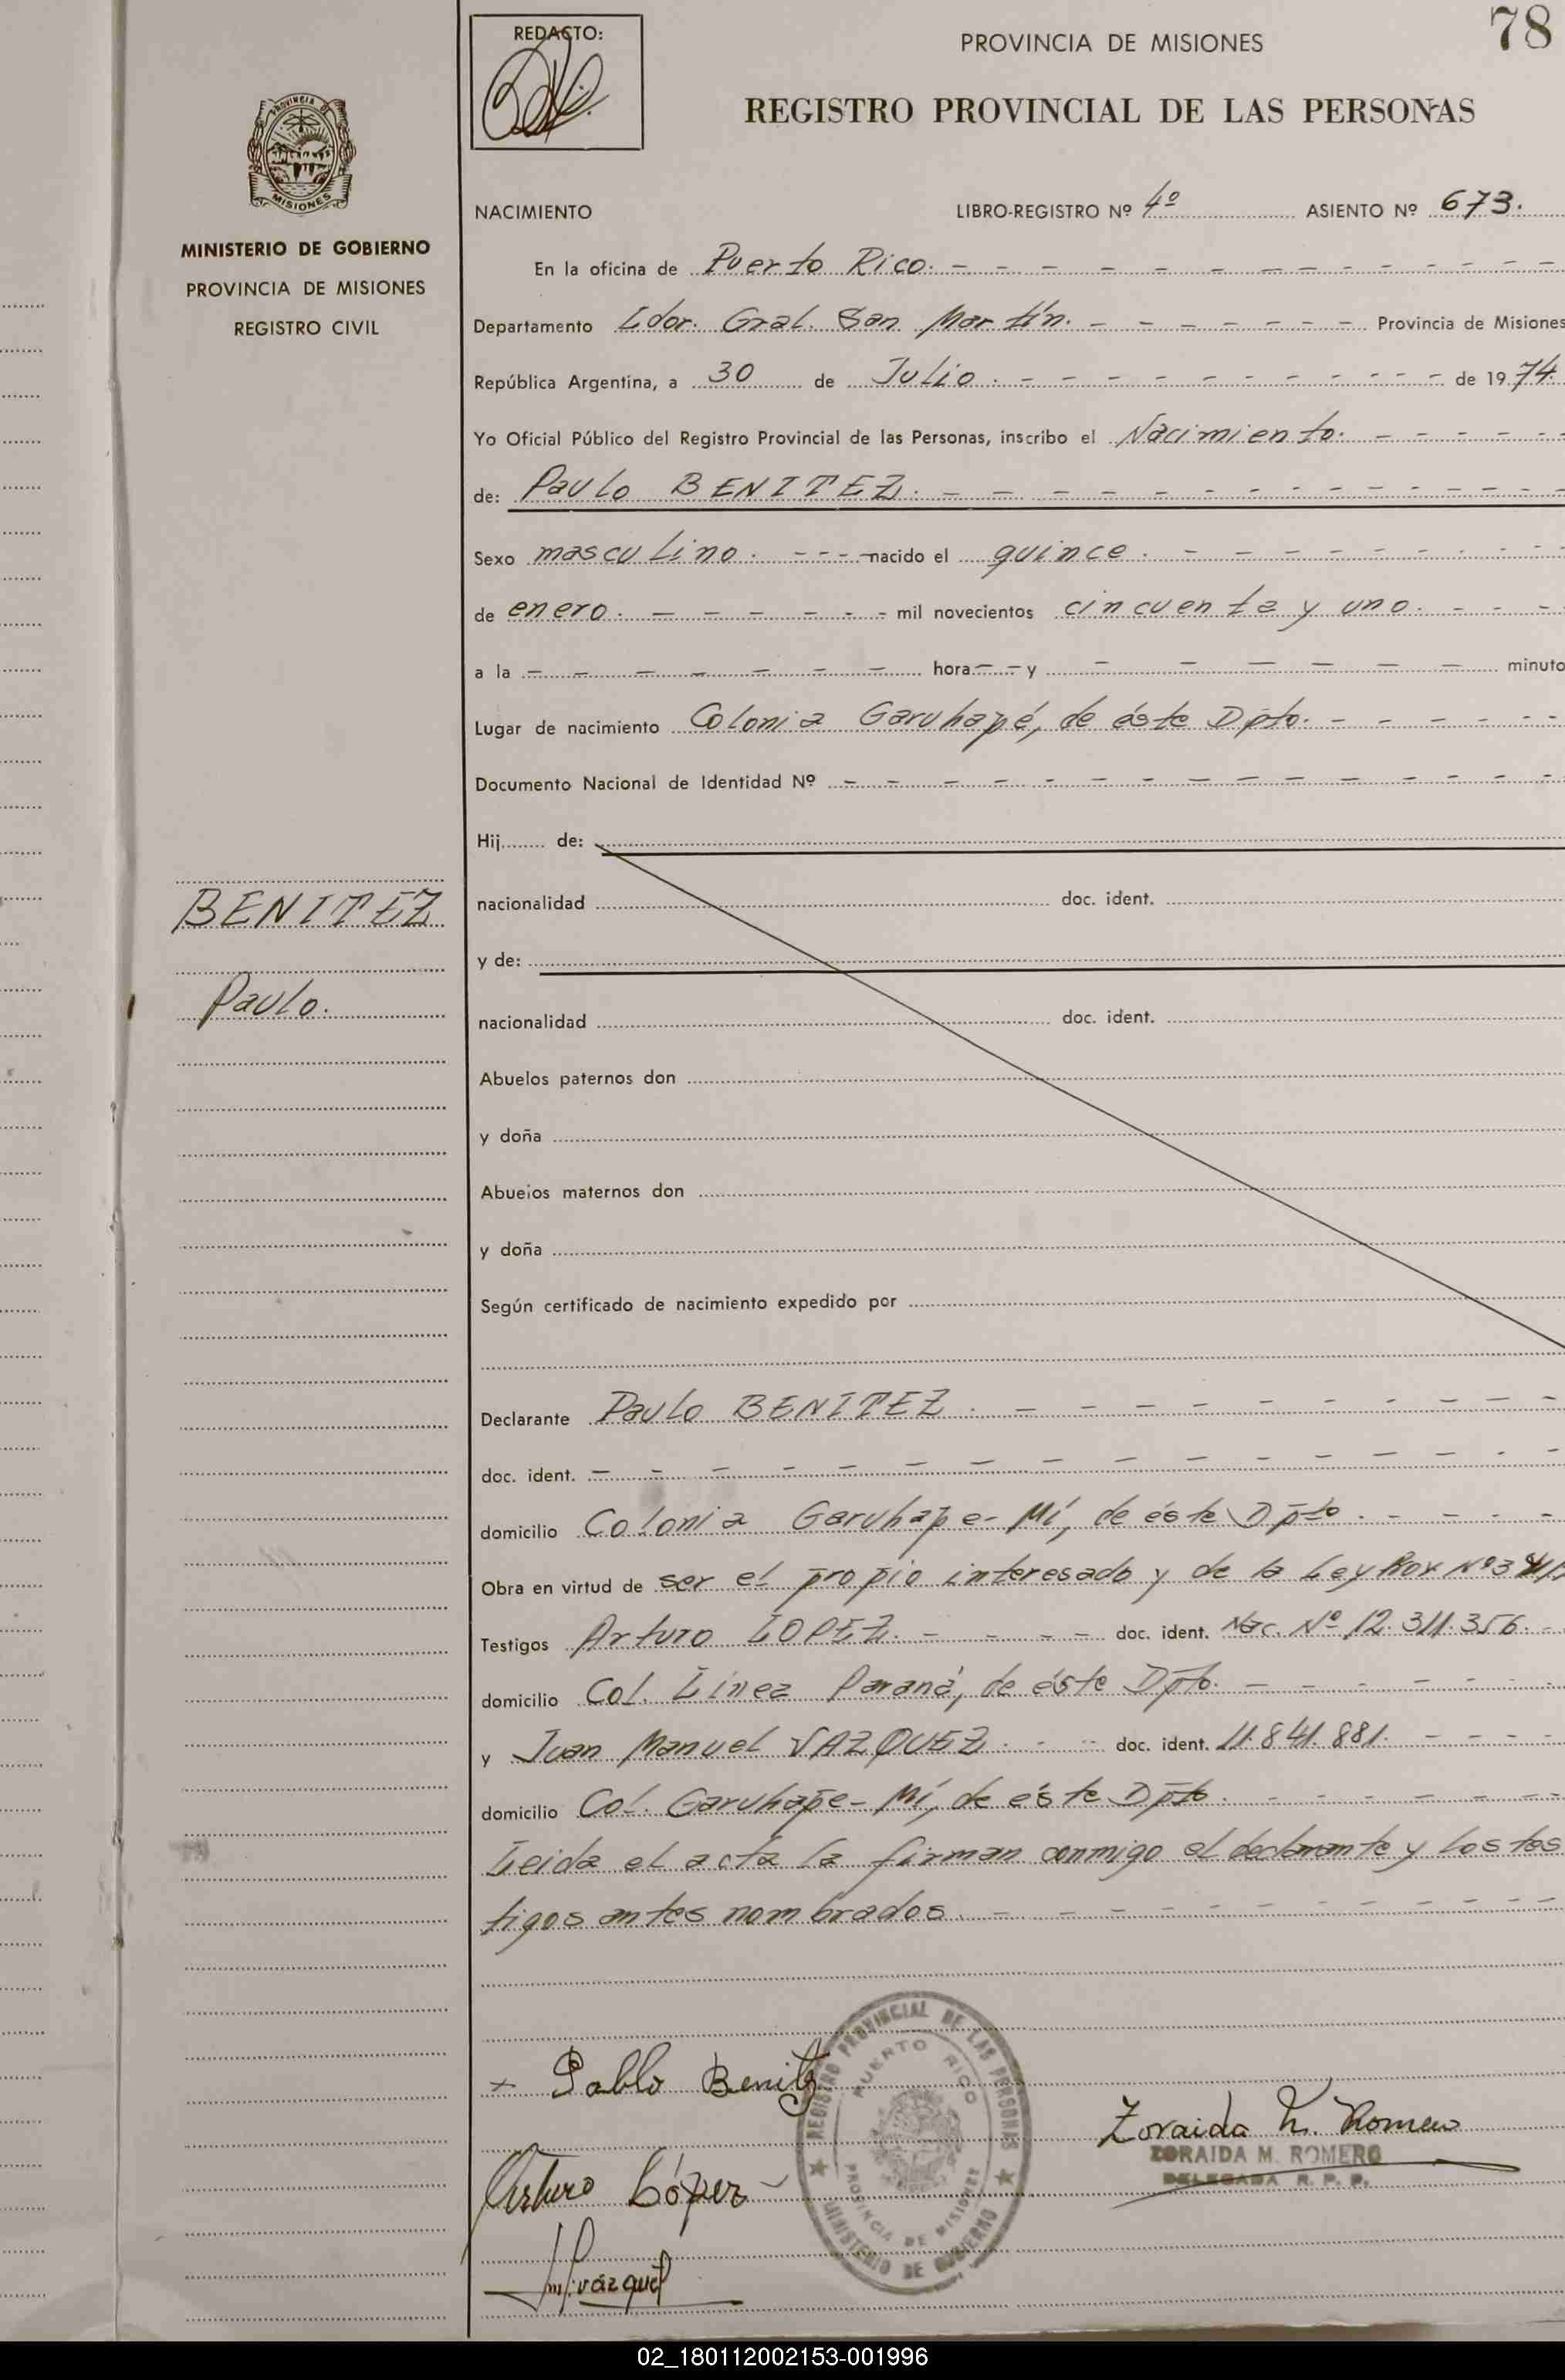 REDACTO:
PROVINCIA DE MISIONES
78
REGISTRO PROVINCIAL DE LAS PERSONAS
PROVINCIA DE
MISIONES
MINISTERIO DE GOBIERNO
PROVINCIA DE MISIONES
REGISTRO CIVIL
NACIMIENTO LIBRO-REGISTRO Nº 4º ASIENTO Nº 673.
En la oficina de Puerto Rico. - - - - - - - - - - - -
Departamento Ldor. Gral. San Martín. - - - - - - - Provincia de Misiones
República Argentina, a 30 de Julio. - - - - - - - - - - de 1974.
Yo Oficial Público del Registro Provincial de las Personas, inscribo el Nacimiento. - - - - -
de: Paulo BENITEZ. - - - - - - - - - - - -
Sexo masculino. - - - - nacido el quince. - - - - - - - -
de enero. - - - - - - mil novecientos cincuenta y uno. - - -
a la - - - - - - - hora - - y - - - - - - - minuto
Lugar de nacimiento Colonia Garuhapé, de éste Dpto. - - - - - -
Documento Nacional de Identidad Nº - - - - - - - - - - - - - -
Hij........ de:
nacionalidad doc. ident.
y de:
nacionalidad doc. ident.
Abuelos paternos don
y doña
Abuelos maternos don
y doña
Según certificado de nacimiento expedido por
BENITEZ
Paulo.
Declarante Paulo BENITEZ. - - - - - - - - - -
doc. ident. - - - - - - - - - - - - - - -
domicilio Colonia Garuhape-Mí, de éste Dpto. - - - -
Obra en virtud de ser el propio interesado y de la Ley
Testigos Arturo LOPEZ. - - - - - doc. ident. Nac. Nº 12.311.356. -
domicilio Col. Línea Paraná, de éste Dpto. - - - - - -
y Juan Manuel VAZQUEZ. - - doc. ident. 11.841.881. - - - -
domicilio Col. Garuhape-Mí, de éste Dpto. - - - - - - -
Leida el acta la firman conmigo el declarante y los tes
tigos antes nombrados. - - - - - - - - - -
+ Pablo Benitez
REGISTRO PROVINCIAL DE LAS PERSONAS
PUERTO RICO
PROVINCIA DE MISIONES
MINISTERIO DE GOBIERNO
Zoraida M. Romero
ZORAIDA M. ROMERO
DELEGADA R. P. P.
Arturo López
J.M. Vázquez
02_180112002153-001996